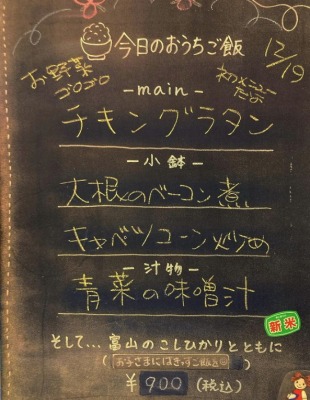 今日のおうちご飯
12/19
お野菜
ゴロゴロ
初メニュー
だよ
-main-
チキングラタン
-小鉢-
大根のベーコン煮
キャベツコーン炒め
-汁物-
青菜の味噌汁
新米
そして…富山のこしひかりとともに
¥900(税込)